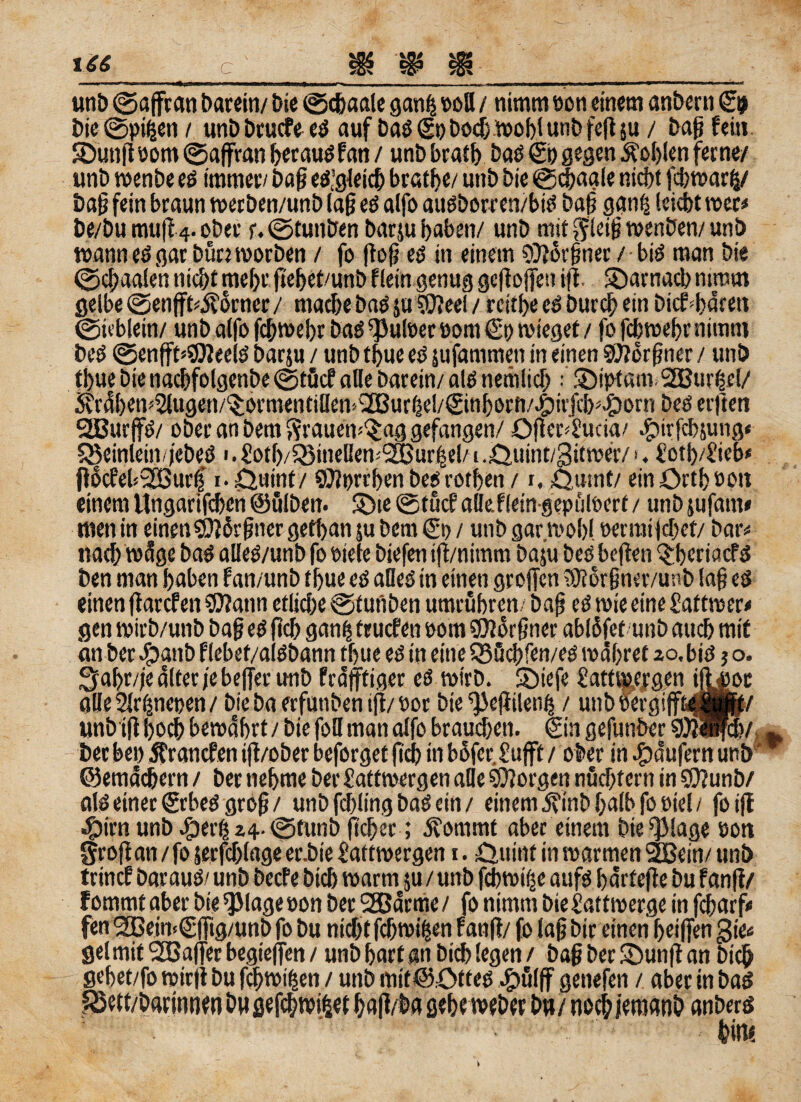 166
und Saffran darein/ die Schaale gantz voll / nimm von einem andern Ey
die Spitzen / und drucke es auf das Ey doch wohl und fest zu / daß kein
Dunst vom Saffran heraus kan / und brath das Ey gegen Kohlen ferne/
und wende es immer/ daß es gleich brathe/ und die Schaale nicht schwartz/
daß kein braun werden/und laß es also ausdorren/bis daß gantz leicht wer-
de/du must 4. oder 5. Stunden darzu haben/ und mit Fleiß wenden/ und
wann es gar dürr worden / so stoß es in einem Mörßner / bis man die
Schaalen nicht mehr siehet/und klein genug gestossen ist. Darnach nimm
gelbe Senfft-Körner / mache das zu Meel / reithe es durch ein dick-hären
Sieblein/ und also schwehr das Pulver vom Ey wieget / so schwehr nimm
des Senfft-Meels darzu / und thue es zusammen in einen Mörßner / und
thue die nachfolgende Stück alle darein/ als nemlich : Diptam-Wurtzel/
Krähen-Augen/Tormentillen-Wurtzel/Einhorn/Hirsch-Horn des ersten
Wurffs/ oder an dem Frauen-Tag gefangen/ Oster-Lucia/ Hirschzung-
Beinlein/jedes 1. Loth/Binellen-Wurtzel/ 1. Quint/Zitwer/ 1. Loth/Lieb-
stöckel-Wurtz 1. Quint/ Myrrhen des rothen / 1. Quint/ ein Orth von
einem Ungarischen Gülden. Die Stück alle klein gepülvert / und zusam-
men in einen Mörßner gethan zu dem Ey / und gar wohl vermischet/ dar-
nach wäge das alles/und so viele diesen ist/nimm dazu des besten Theriacks
den man haben kan/und thue es alles in einen grossen Mörßner/und laß es
einen starcken Mann etliche Stunden umrühren/ daß es wie eine Lattwer-
gen wird/und daß es sich gantz trucken vom Mörßner ablöset und auch mit
an der Hand klebet/alsdann thue es in eine Büchsen/es währet 20. bis 30.
Jahr/je älter je besser und kräfftiger es wird. Diese Lattwergen ist vor
alle Artzneyen/ die da erfunden ist/ vor die Pestilentz / und
und ist hoch bewährt / die soll man also brauchen. Ein gesunder
der bey Krancken ist/oder besorget sich in böser Lufft / oder in Häusern und
Gemächern / der nehme der Lattwergen alle Morgen nüchtern in Mund/
als einer Erbes groß / und schling das ein / einem Kind halb so viel / so ist
Hirn und Hertz 24. Stund sicher ; Kommt aber einem die Plage von
Frost an / so zerschlage er die Lattwergen 1. Quint in warmen Wein/ und
trinck daraus/ und decke dich warm zu / und schwitze aufs härteste du kanst/
kommt aber die Plage von der Wärme / so nimm die Lattwerge in scharf-
fen Wein-Essig/und so du nicht schwitzen kanst/ so laß dir einen heissen Zie-
gel mit Wasser begiessen / und hart an dich legen / daß der Dunst an dich
gehet/so wirst du schwitzen / und mit GOttes Hülff genesen / aber in das
Bett/darinnen du geschwitzet hast/da gehe weder du/ noch jemand anders
hin;